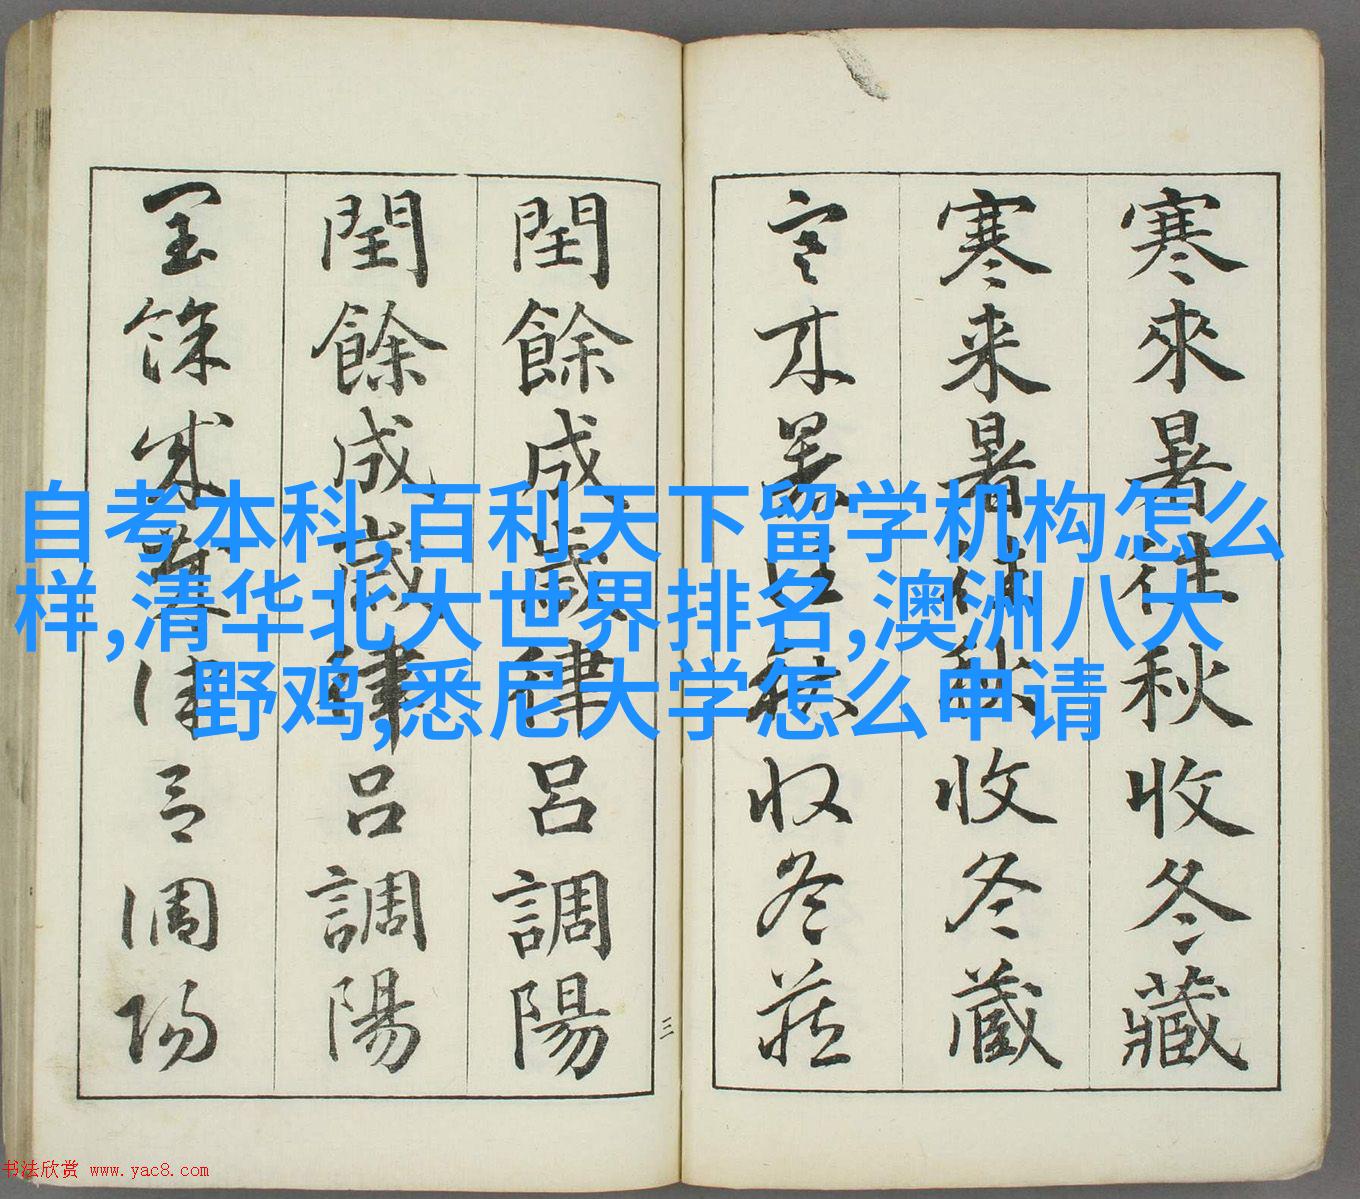 寒來暑往秋收冬藏
寒来暑往秋收冬蔵
寒来暑往秋收冬蔵
閏餘成歲律呂調陽
閏餘成歲律呂調陽
閏餘成歲律呂調陽
三
自考本科,百利天下留学机构怎么
样,清华北大世界排名,澳洲八大
野鸡,悉尼大学怎么申请
书法欣赏 www.yac8.com